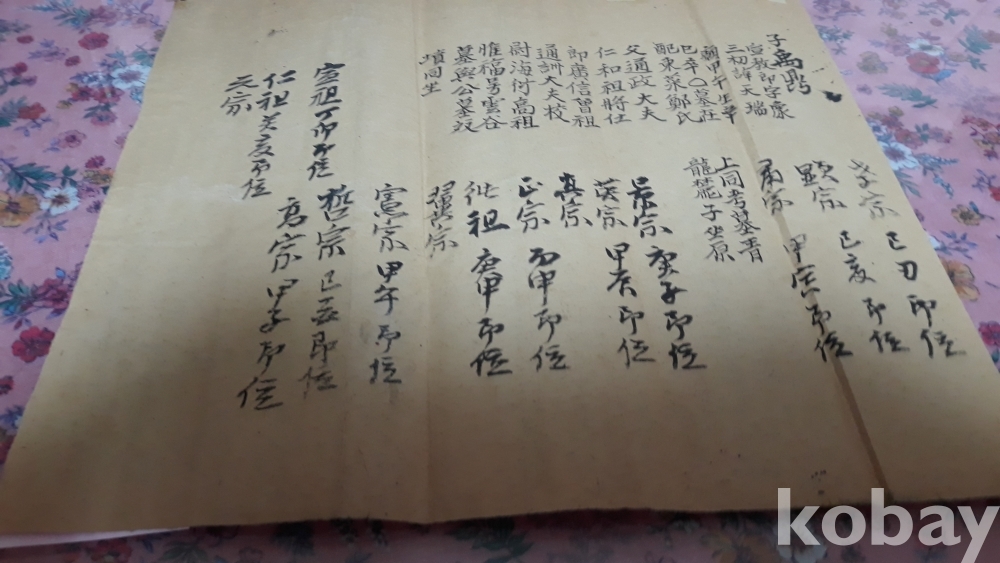 子禹鼎
宣教郎字康
三初諱天瑞
甲午生卒
己辛乙墓在
配東萊鄭氏
父通政大夫
仁和祖將仕
郎廣信曾祖
通訓大夫校
尉海付高祖
惟福芳雲谷
墓與公墓並
墳同坐
上同考墓青
龍麓子坐原
孝宗 己丑 即位
顯宗 己亥 即位
肅宗 甲寅 即位
景宗 庚子 即位
英宗 甲辰 即位
真宗
正宗 丙申 即位
純祖 庚申 即位
翼宗
憲宗 甲午 即位
哲宗 己酉 即位
高宗 甲子 即位
宣祖 丁卯 即位
仁祖 癸亥 即位
元宗
kobay